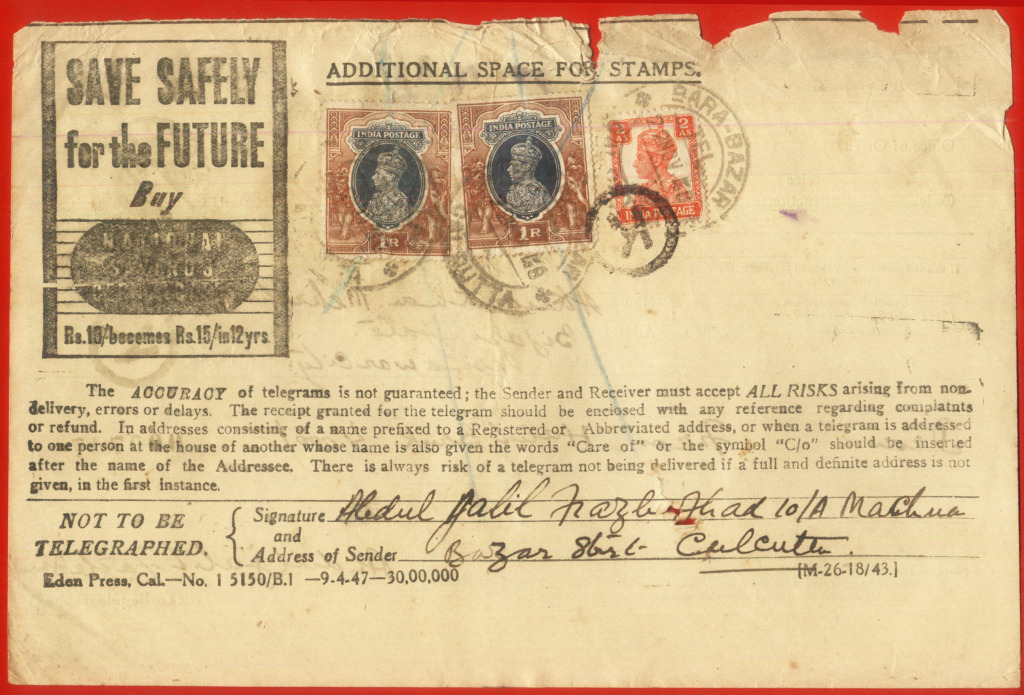 SAVE SAFELY
for the FUTURE
Buy
NATIONAL
SAVINGS
Rs.10/-becomes Rs.15/in 12 yrs.
ADDITIONAL SPACE FOR STAMPS.
INDIA POSTAGE
1R
INDIA POSTAGE
1R
2 AS
2 AS
INDIA POSTAGE
BARA-BAZAR
CALCUTTA
The ACCURACY of telegrams is not guaranteed; the Sender and Receiver must accept ALL RISKS arising from non-
delivery, errors or delays. The receipt granted for the telegram should be enclosed with any reference regarding complaints
or refund. In addresses consisting of a name prefixed to a Registered or Abbreviated address, or when a telegram is addressed
to one person at the house of another whose name is also given the words “Care of” or the symbol “C/o” should be inserted
after the name of the Addressee. There is always risk of a telegram not being delivered if a full and definite address is not
given, in the first instance.
NOT TO BE
TELEGRAPHED.
Signature Abdul Jalil 10/A Machua
and
Address of Sender Bazar Calcutta.
Eden Press, Cal.—No. 1 5150/B.1 —9-4-47—30,00,000
[M-26-18/43.]